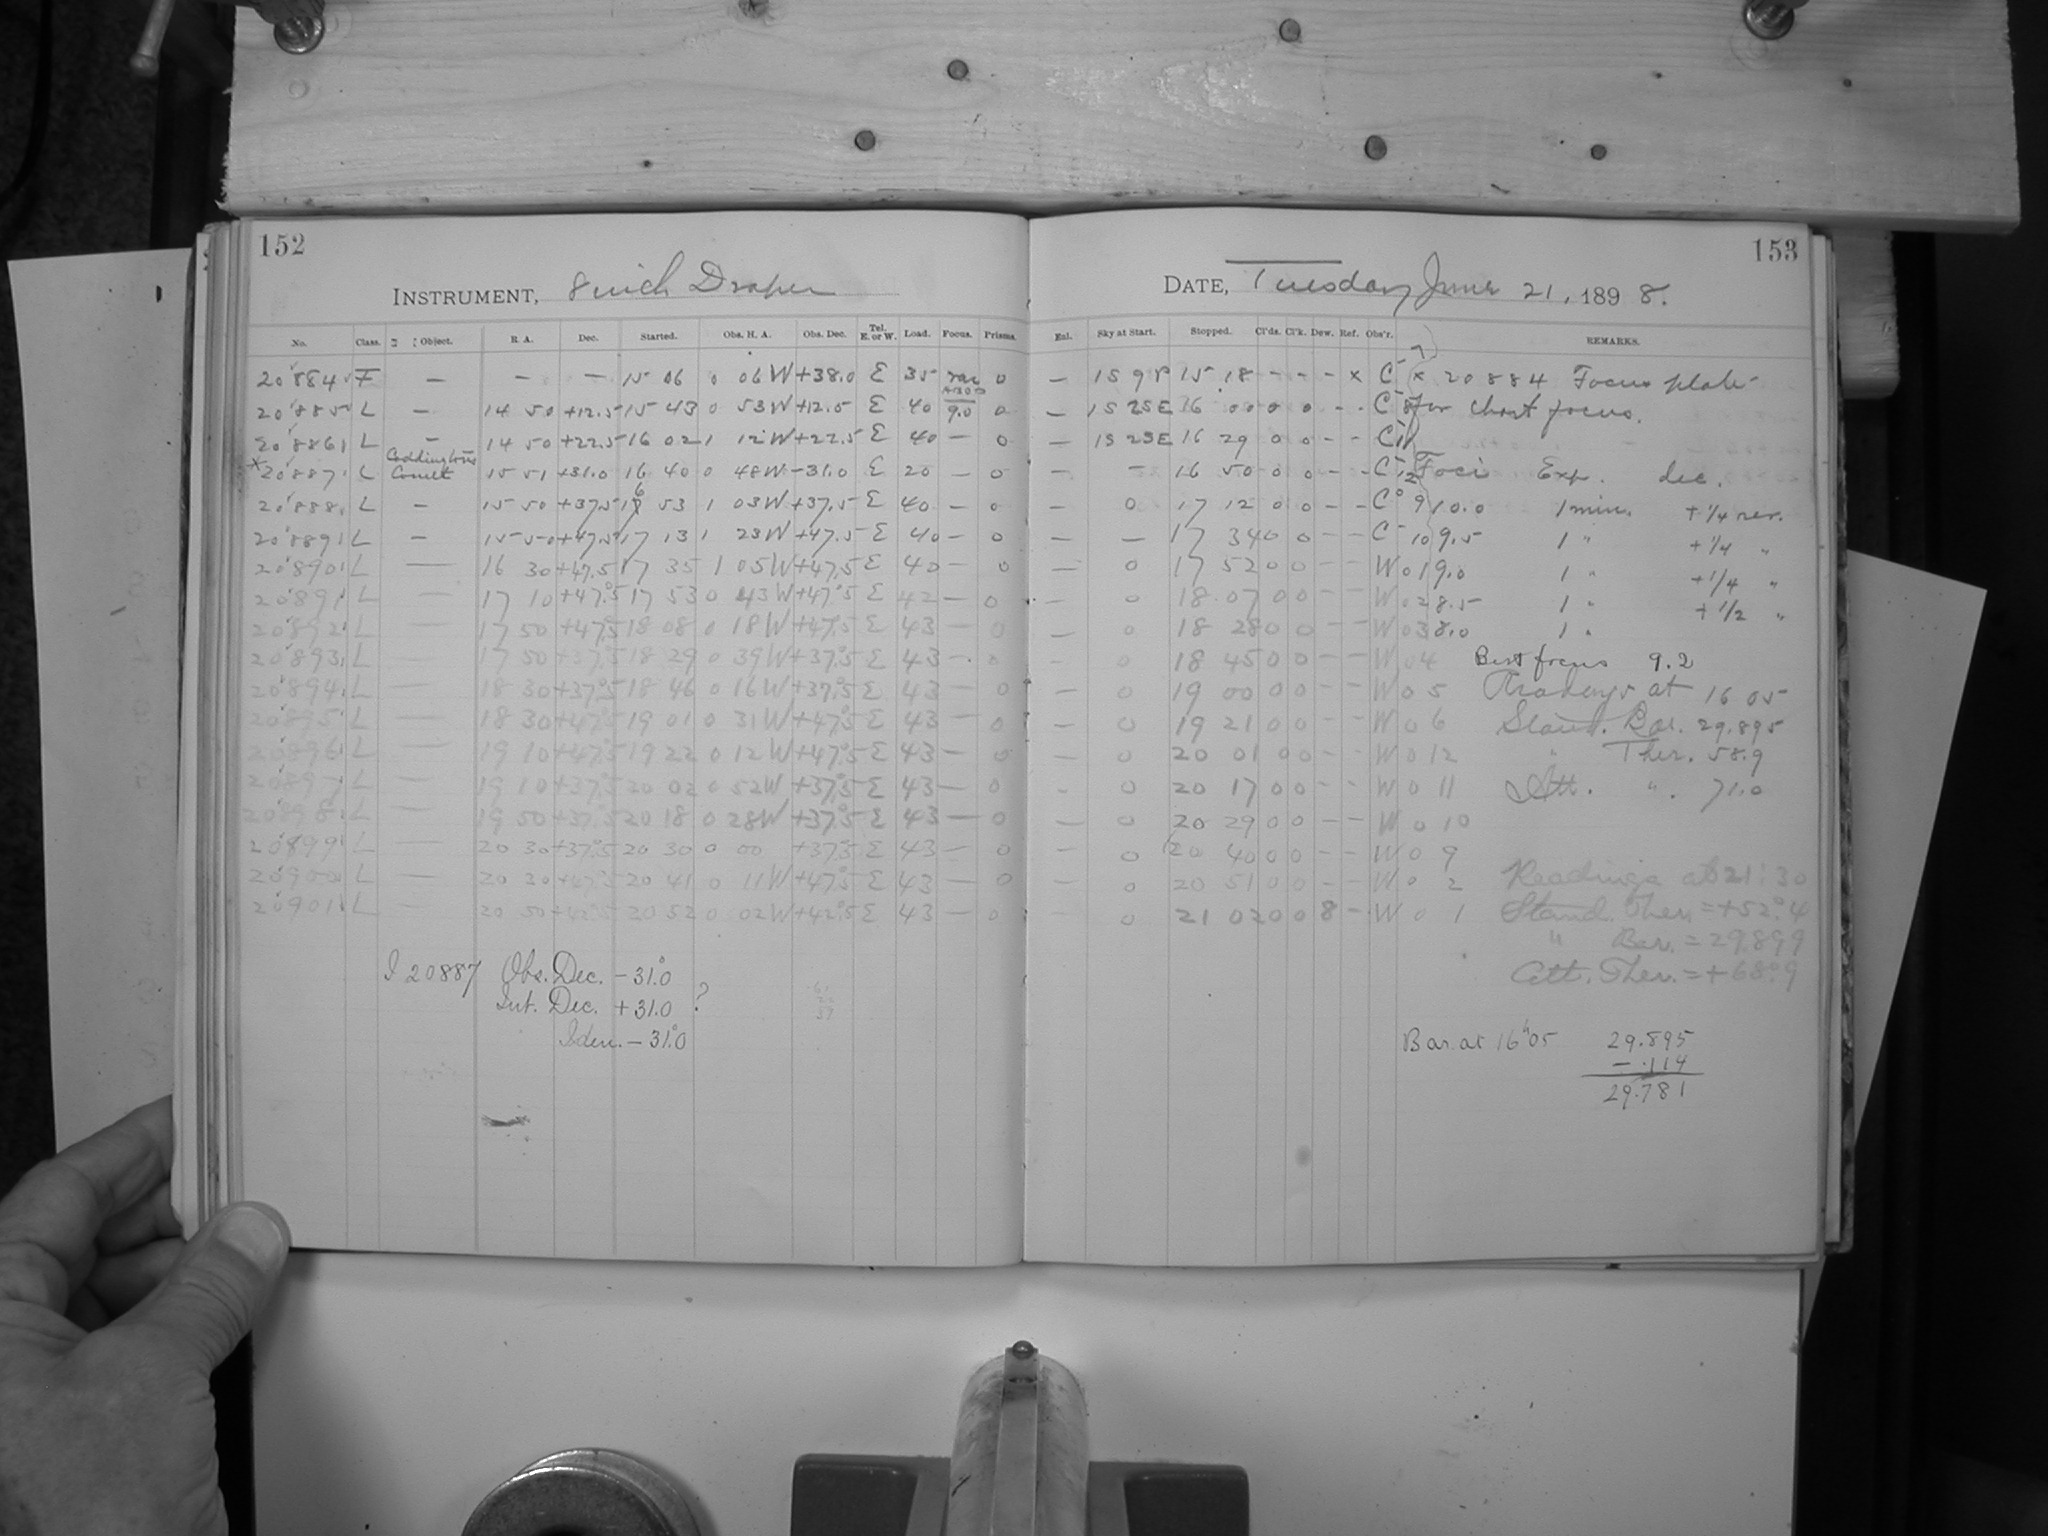 152
INSTRUMENT, 8 inch Draper
No. Class. Object. R. A. Dec. Started. Obs. H. A. Obs. Dec. Tel. E. or W. Load. Focus. Prisms.
20884 F — — — 15 06 0 06W +38.0 E 35 0
20885 L — 14 50 +12.5 15 43 0 53W +12.5 E 40 9.0 0
20886 L — 14 50 +22.5 16 02 1 12W +22.5 E 40 — 0
*20887 L Coddington's Comet 15 51 +31.0 16 40 0 48W -31.0 E 20 — 0
20888 L — 15 50 +37.5 16 53 1 03W +37.5 E 40 — 0
20889 L — 15 50 +47.5 17 13 1 23W +47.5 E 40 — 0
20890 L — 16 30 +47.5 17 35 1 05W +47.5 E 40 — 0
20891 L — 17 10 +47.5 17 53 0 43W +47.5 E 42 — 0
20892 L — 17 50 +47.5 18 08 0 18W +47.5 E 43 — 0
20893 L — 17 50 +37.5 18 29 0 39W +37.5 E 43 — 0
20894 L — 18 30 +37.5 18 46 0 16W +37.5 E 43 — 0
20895 L — 18 30 +47.5 19 01 0 31W +47.5 E 43 — 0
20896 L — 19 10 +47.5 19 22 0 12W +47.5 E 43 — 0
20897 L — 19 10 +37.5 20 02 0 52W +37.5 E 43 — 0
20898 L — 19 50 +37.5 20 18 0 28W +37.5 E 43 — 0
20899 L — 20 30 +37.5 20 30 0 00 +37.5 E 43 — 0
20900 L — 20 30 +47.5 20 41 0 11W +47.5 E 43 — 0
20901 L — 20 50 +42.5 20 52 0 02W +42.5 E 43 — 0
I 20887 Obs. Dec. -31.0
Int. Dec. +31.0 ?
Iden. -31.0
153
DATE, Tuesday June 21, 1898.
Enl. Sky at Start. Stopped. Cl'ds. Cl'k. Dew. Ref. Obs'r. REMARKS.
— 15 18 - - - x C x 20884 Focus plate
— 15 25E 16 00 0 0 - - C for chart focus.
— 15 25E 16 29 0 0 - - C
— — 16 50 0 0 - - C 12 Foci Exp. dec.
— 0 17 12 0 0 - - C 9 10.0 1 min. +1/4 rev.
— — 17 34 0 0 - - C 10 9.5 1 " +1/4 "
— 0 17 52 0 0 - - W 01 9.0 1 " +1/4 "
— 0 18 07 0 0 - - W 02 8.5 1 " +1/2 "
— 0 18 28 0 0 - - W 03 8.0 1 "
— 0 18 45 0 0 - - W 04 Best focus 9.2
— 0 19 00 0 0 - - W 05 Readings at 16 05
— 0 19 21 0 0 - - W 06 Stand. Bar. 29.895
— 0 20 01 0 0 - - W 012 " Ther. 58.9
- 0 20 17 0 0 - - W 011 Att. " 71.0
— 0 20 29 0 0 - - W 010
— 0 20 40 0 0 - - W 09
— 0 20 51 0 0 - - W 02 Readings at 21:30
— 0 21 02 0 0 8 - W 01 Stand. Ther. = +52.4
" Bar. = 29.899
Att. Ther. = +68.9
Bar. at 16h05 29.895
- .114
29.781